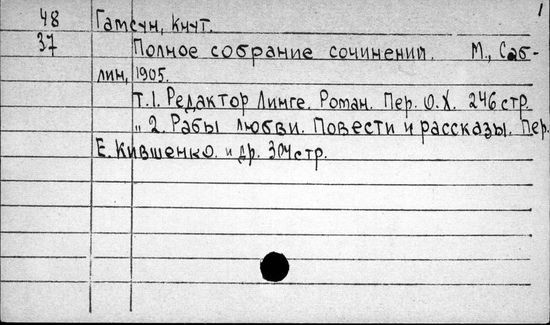 1
48 Гамсун, Кнут.
37 Полное собрание сочинений. М., Саб-
лин, 1905.
Т.1. Редактор Линге. Роман. Пер. О.Х. 246 стр.
" 2. Рабы любви. Повести и рассказы. Пер.
Е. Кившенко. и др. 304 стр.